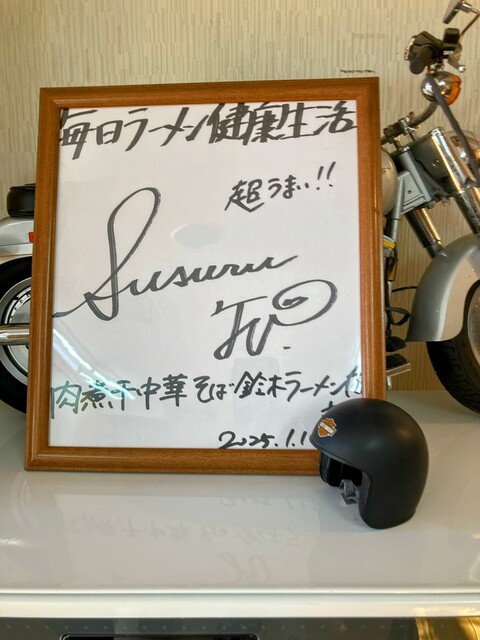 毎日ラーメン健康生活
超うまい!!
Susuru
TV.
肉煮干し中華そば鈴木ラーメン店
2025.1.1